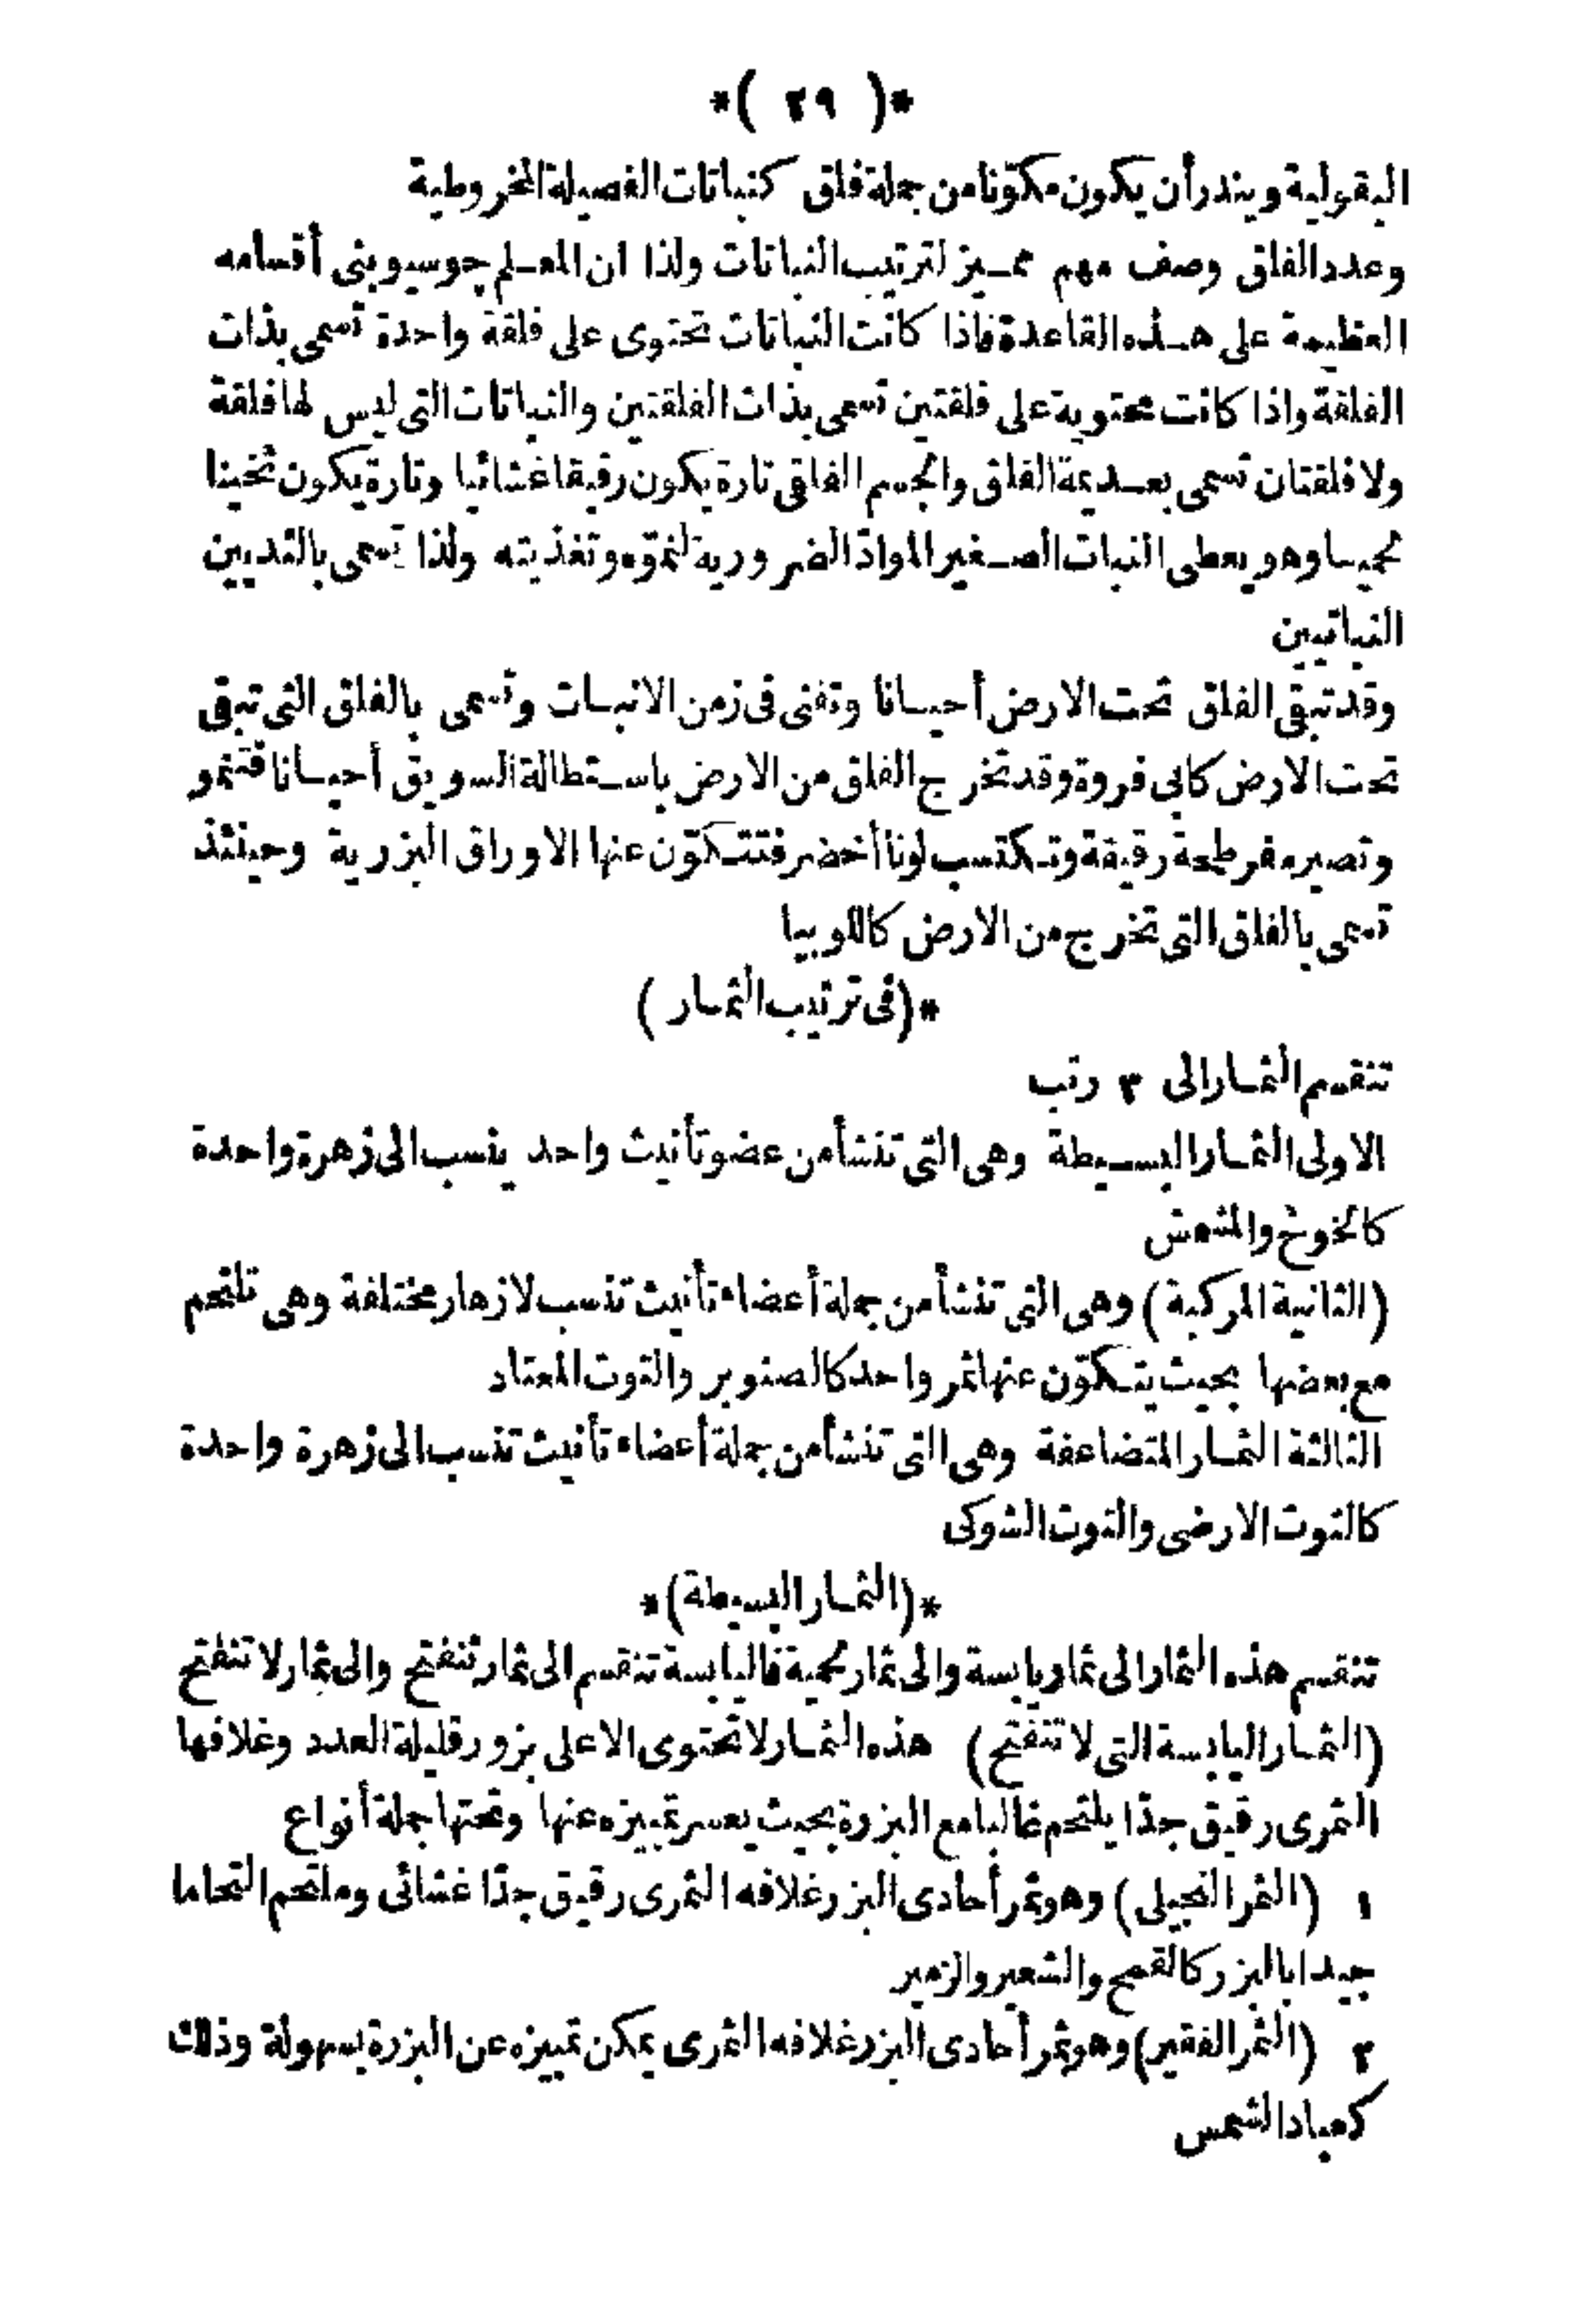 *( ٢٩ )*
البقولية ويندر أن يكون مكوّنا من جملة فلق كنباتات الفصيلة المخروطية
وعدد الفلق وصف مهم مميز لترتيب النباتات ولذا ان المعلم چوسيو بنى أقسامه
العظيمة على هذه القاعدة فاذا كانت النباتات تحتوى على فلقة واحدة تسمى بذات
الفلقة واذا كانت محتوية على فلقتين تسمى بذات الفلقتين والنباتات التى ليس لها فلقة
ولا فلقتان تسمى بعديمة الفلق والجسم الفلقى تارة يكون رقيقا غشائيا وتارة يكون ثخينا
لحميا وهو يعطى النبات الصغير الموادّ الضرورية لنموّه وتغذيته ولذا تسمى بالثديين
النباتيين
وقد تبقى الفلق تحت الارض أحيانا وتفنى فى زمن الانبات وتسمى بالفلق التى تبقى
تحت الارض كابى فروة وقد تخرج الفلق من الارض باستطالة السويق أحيانا فتنمو
وتصير مفرطحة رقيقة وتكتسب لونا أخضر فتتكوّن عنها الاوراق البزرية وحينئذ
تسمى بالفلق التى تخرج من الارض كاللوبيا
*(فى ترتيب الثمار )
تنقسم الثمار الى ٣ رتب
الاولى الثمار البسيطة وهى التى تنشأ من عضو تأنيث واحد ينسب الى زهرة واحدة
كالخوخ والمشمش
(الثانية المركبة) وهى التى تنشأ من جملة أعضاء تأنيث تنسب لازهار مختلفة وهى تلتحم
مع بعضها بحيث يتكوّن عنها ثمر واحد كالصنوبر والتوت المعتاد
الثالثة الثمار المتضاعفة وهى التى تنشأ من جملة أعضاء تأنيث تنسب الى زهرة واحدة
كالتوت الارضى والتوت الشوكى
*(الثمار البسيطة)*
تنقسم هذه الثمار الى ثمار يابسة والى ثمار لحمية فاليابسة تنقسم الى ثمار تنفتح والى ثمار لا تنفتح
(الثمار اليابسة التى لا تنفتح) هذه الثمار لا تحتوى الا على بزور قليلة العدد وغلافها
الثمرى رقيق جدّا يلتحم غالبا مع البزرة بحيث يعسر تمييزه عنها وتحتها جملة أنواع
١ (الثمر النجيلى) وهو ثمر أحادى البزر غلافه الثمرى رقيق جدّا غشائى وملتحم التحاما
جيدا بالبزر كالقمح والشعير والزمير
٢ (الثمر الفقير) وهو ثمر أحادى البزر غلافه الثمرى يمكن تمييزه عن البزرة بسهولة وذلك
كعباد الشمس